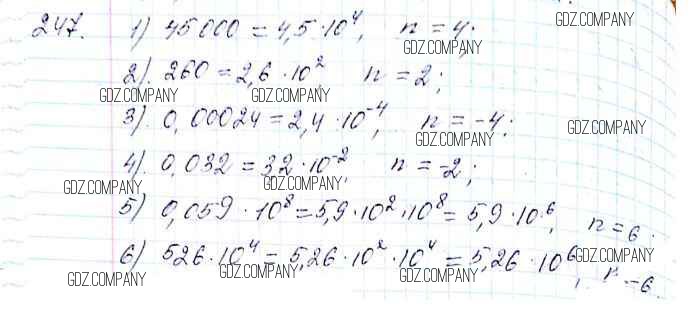 247. 1) 45000 = 4,5·10⁴, n = 4;
GDZ.COMPANY GDZ.COMPANY GDZ.COMPANY
2). 260 = 2,6 · 10², n = 2;
GDZ.COMPANY GDZ.COMPANY
3). 0,00024 = 2,4 · 10⁻⁴, n = -4;
GDZ.COMPANY GDZ.COMPANY
4). 0,032 = 3,2 · 10⁻², n = -2;
GDZ.COMPANY GDZ.COMPANY GDZ.COMPANY
5) 0,059 · 10⁸ = 5,9 · 10² · 10⁸ = 5,9 · 10⁶, n = 6.
6) 526 · 10⁴ = 5,26 · 10² · 10⁴ = 5,26 · 10⁶, n = 6
GDZ.COMPANY GDZ.COMPANY GDZ.COMPANY GDZ.COMPANY